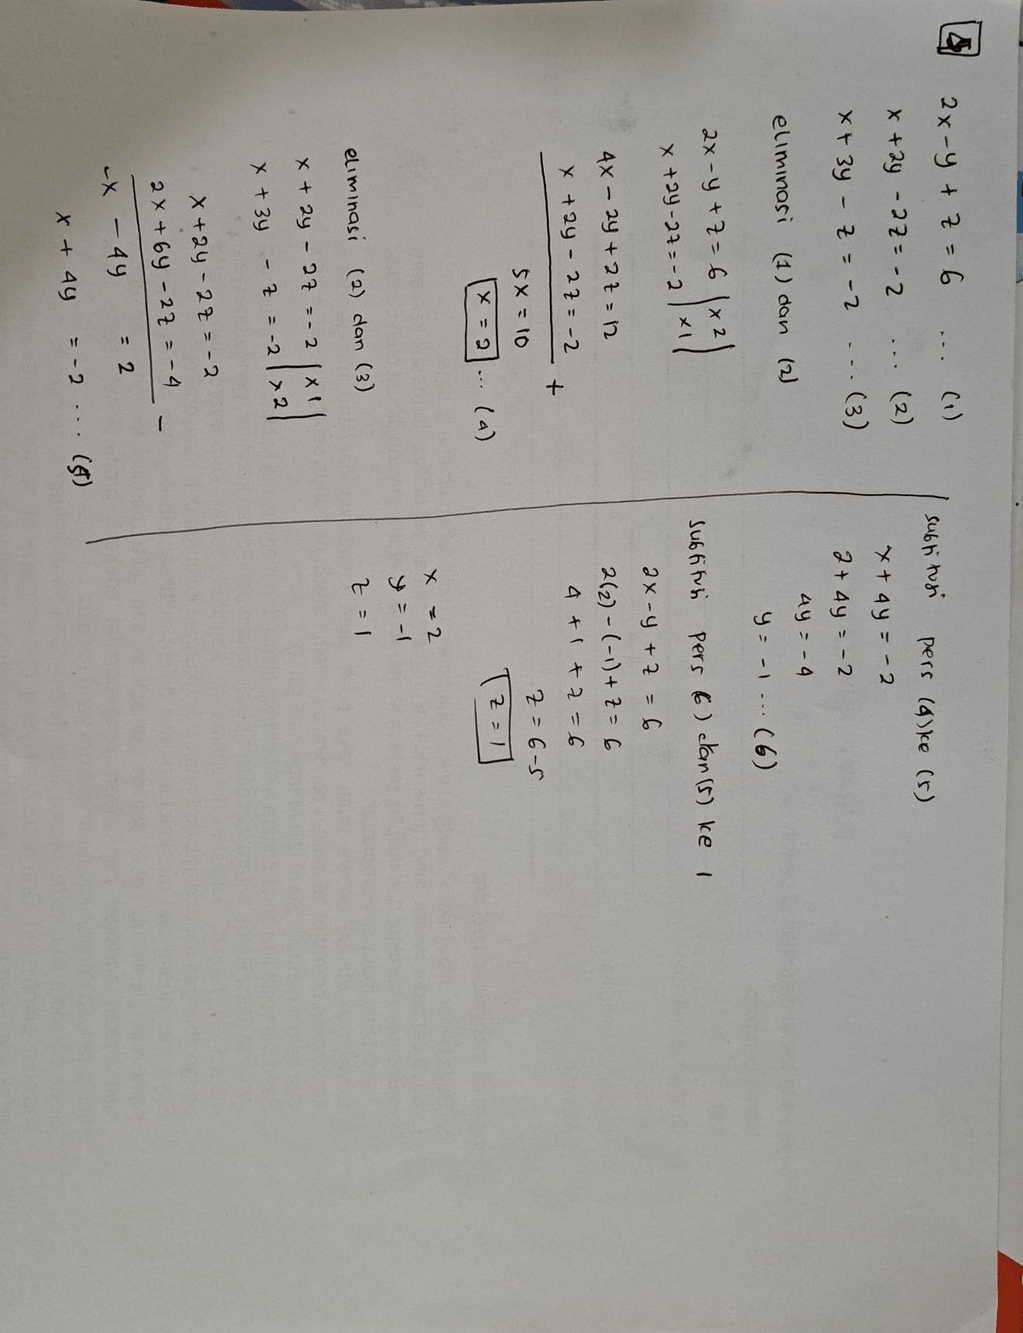 4
2x - y + z = 6 ... (1)
x + 2y - 2z = -2 ... (2)
x + 3y - z = -2 ... (3)
eliminasi (1) dan (2)
2x - y + z = 6 | x2 |
x + 2y - 2z = -2 | x1 |
4x - 2y + 2z = 12
x + 2y - 2z = -2 +
5x = 10
x = 2 ... (4)
eliminasi (2) dan (3)
x + 2y - 2z = -2 | x1 |
x + 3y - z = -2 | x2 |
x + 2y - 2z = -2
2x + 6y - 2z = -4 -
-x - 4y = 2
x + 4y = -2 ... (5)
subtitusi pers (4) ke (5)
x + 4y = -2
2 + 4y = -2
4y = -4
y = -1 ... (6)
subtitusi pers 6) dan (5) ke 1
2x - y + z = 6
2(2) - (-1) + z = 6
4 + 1 + z = 6
z = 6 - 5
z = 1
x = 2
y = -1
z = 1